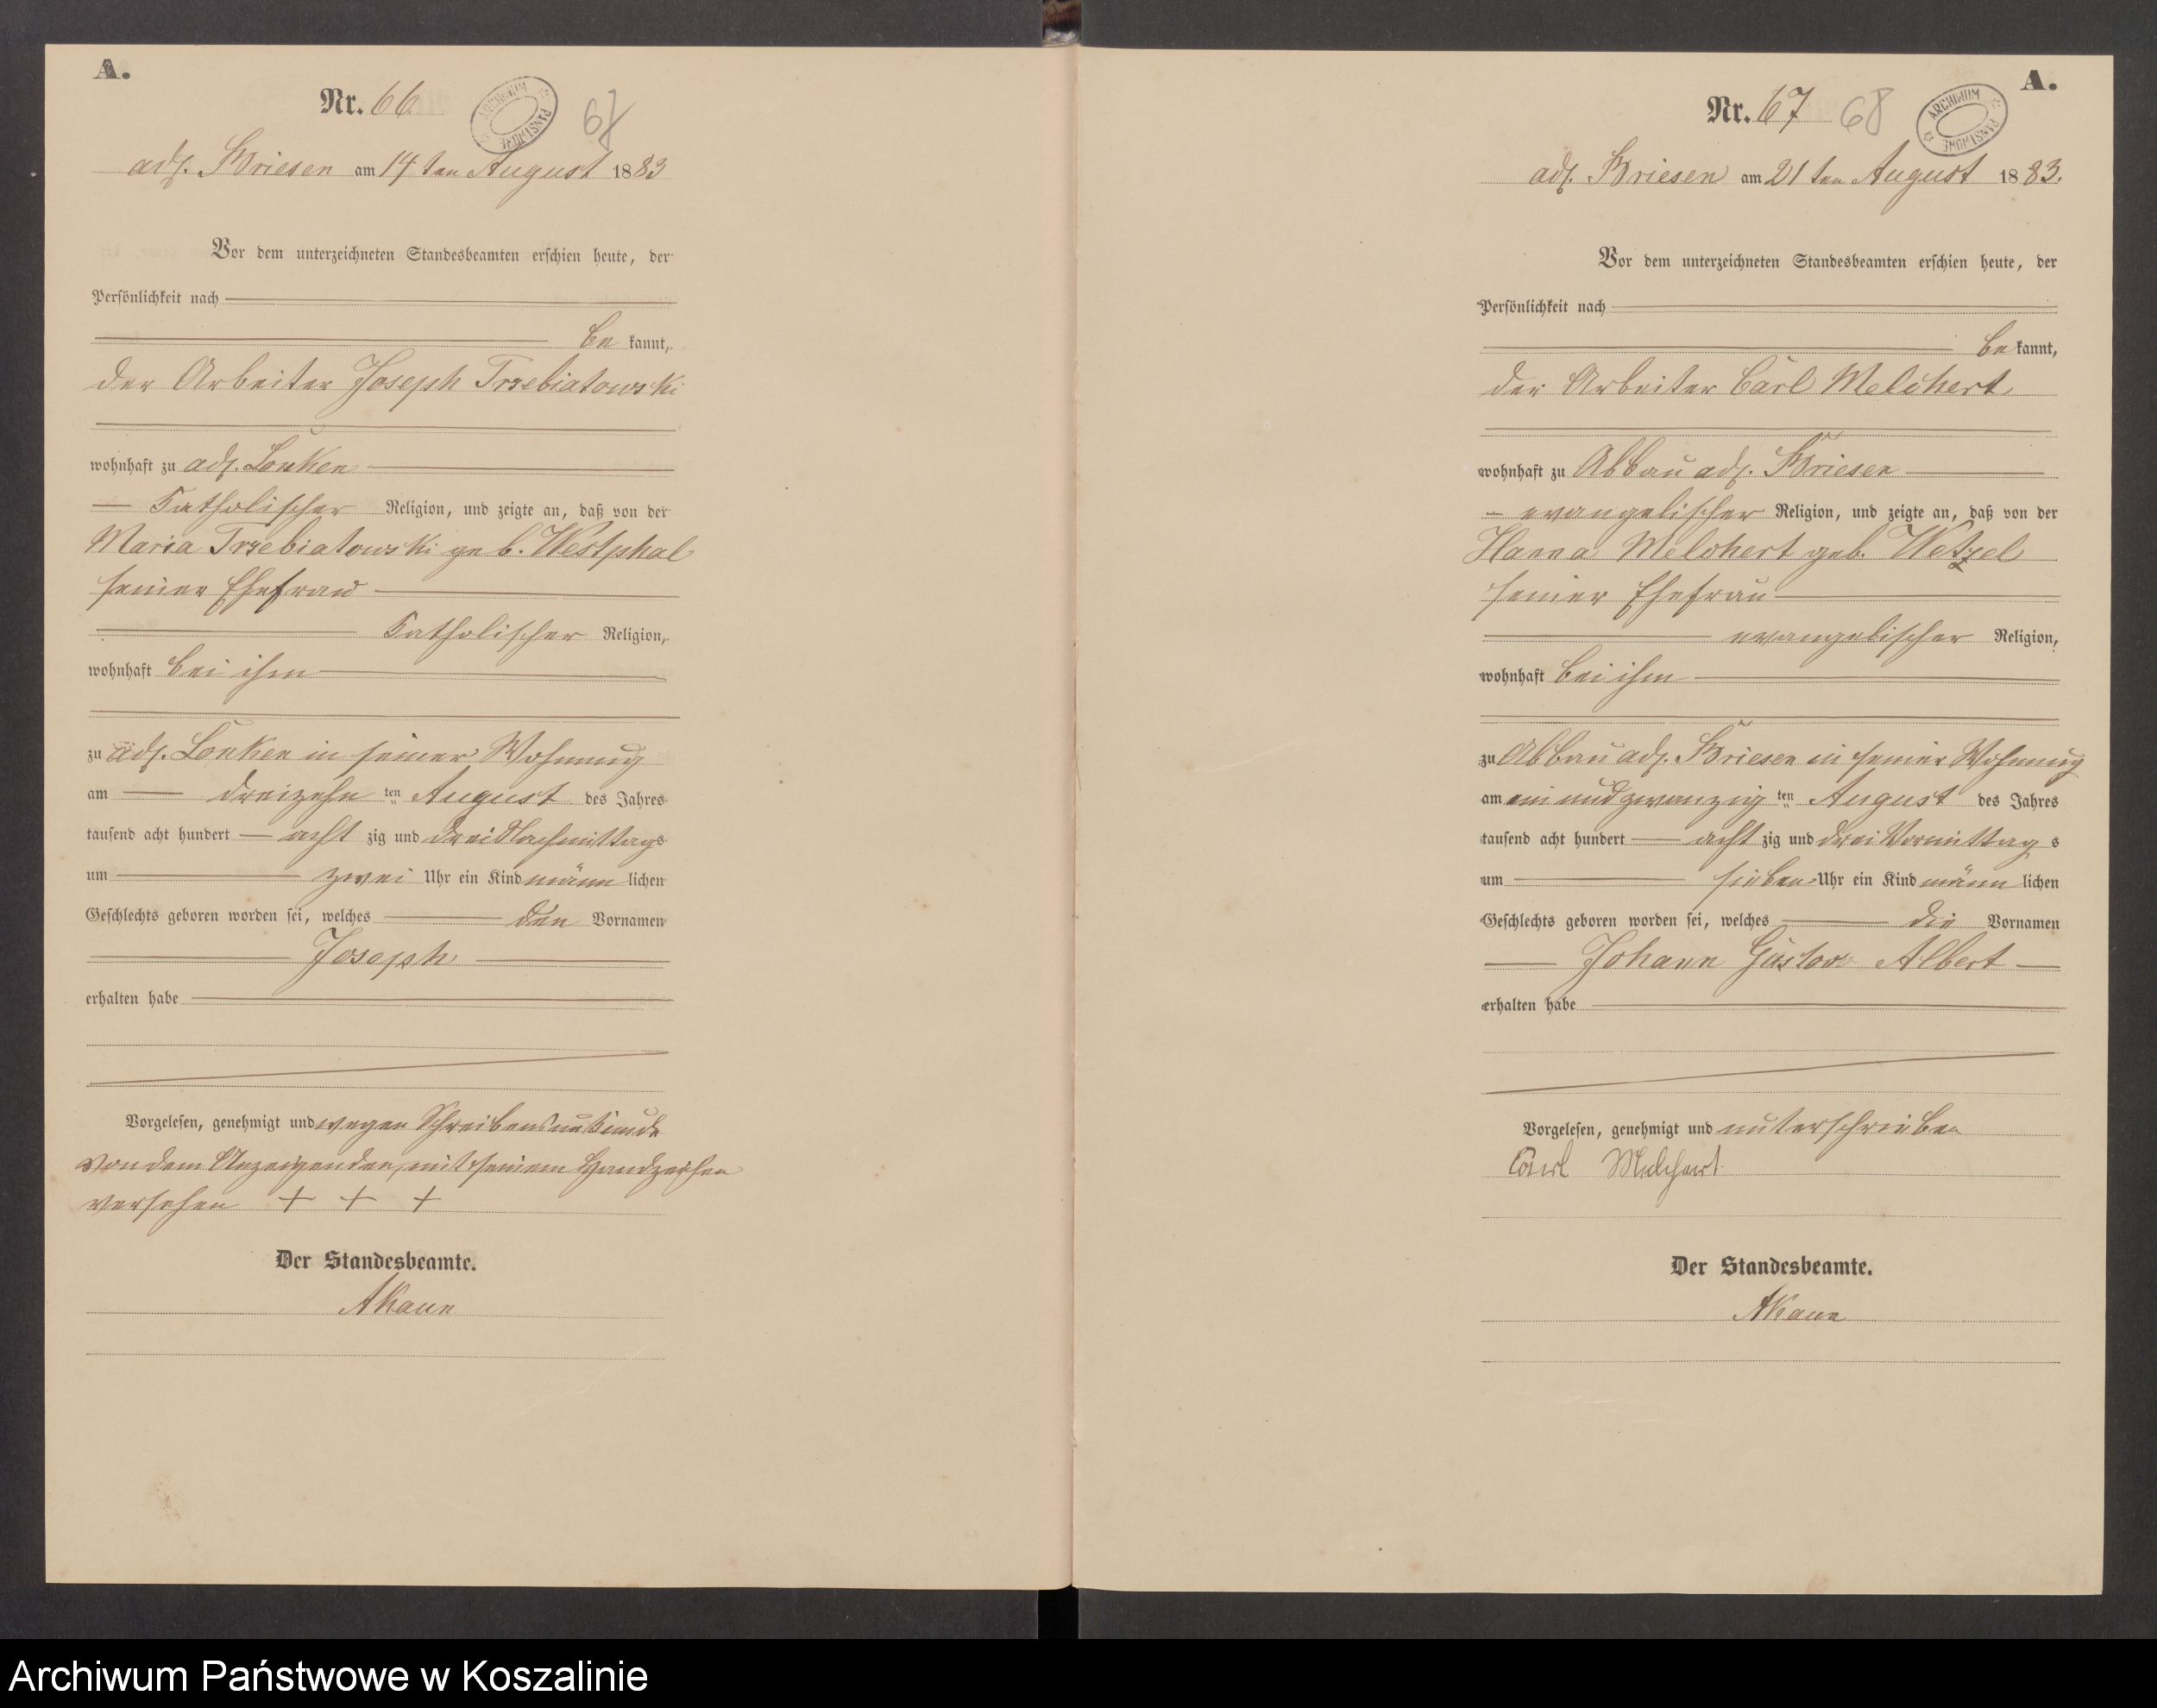 A.
Nr. 66
ARCHIWUM PAŃSTWOWE
67
adl. Briesen am 14ten August 1883
Vor dem unterzeichneten Standesbeamten erschien heute, der
Persönlichkeit nach
be kannt,
der Arbeiter Joseph Trzebiatowski
wohnhaft zu adl. Lonken
Katholischer Religion, und zeigte an, daß von der
Maria Trzebiatowski geb. Westphal
seiner Ehefrau
Katholischer Religion,
wohnhaft bei ihm
zu adl. Lonken in seiner Wohnung
am dreizehn ten August des Jahres
tausend acht hundert acht zig und drei Nachmittags
um zwei Uhr ein Kind männ lichen
Geschlechts geboren worden sei, welches den Vornamen
Joseph
erhalten habe
Vorgelesen, genehmigt und wegen Schreibensunkunde
von dem Anzeigenden, mit seinem Handzeichen
versehen + + +
Der Standesbeamte.
A.
Nr. 67
68
ARCHIWUM PAŃSTWOWE
adl. Briesen am 21ten August 1883.
Vor dem unterzeichneten Standesbeamten erschien heute, der
Persönlichkeit nach
be kannt,
der Arbeiter Carl Melchert
wohnhaft zu Abbau adl. Briesen
evangelischer Religion, und zeigte an, daß von der
Hanna Melchert geb. Wetzel
seiner Ehefrau
evangelischer Religion,
wohnhaft bei ihm
zu Abbau adl. Briesen in seiner Wohnung
am ein und zwanzig ten August des Jahres
tausend acht hundert acht zig und drei Vormittag s
um sieben Uhr ein Kind männ lichen
Geschlechts geboren worden sei, welches die Vornamen
Johann Gustav Albert
erhalten habe
Vorgelesen, genehmigt und unterschrieben
Carl Melchert
Der Standesbeamte.
Archiwum Państwowe w Koszalinie